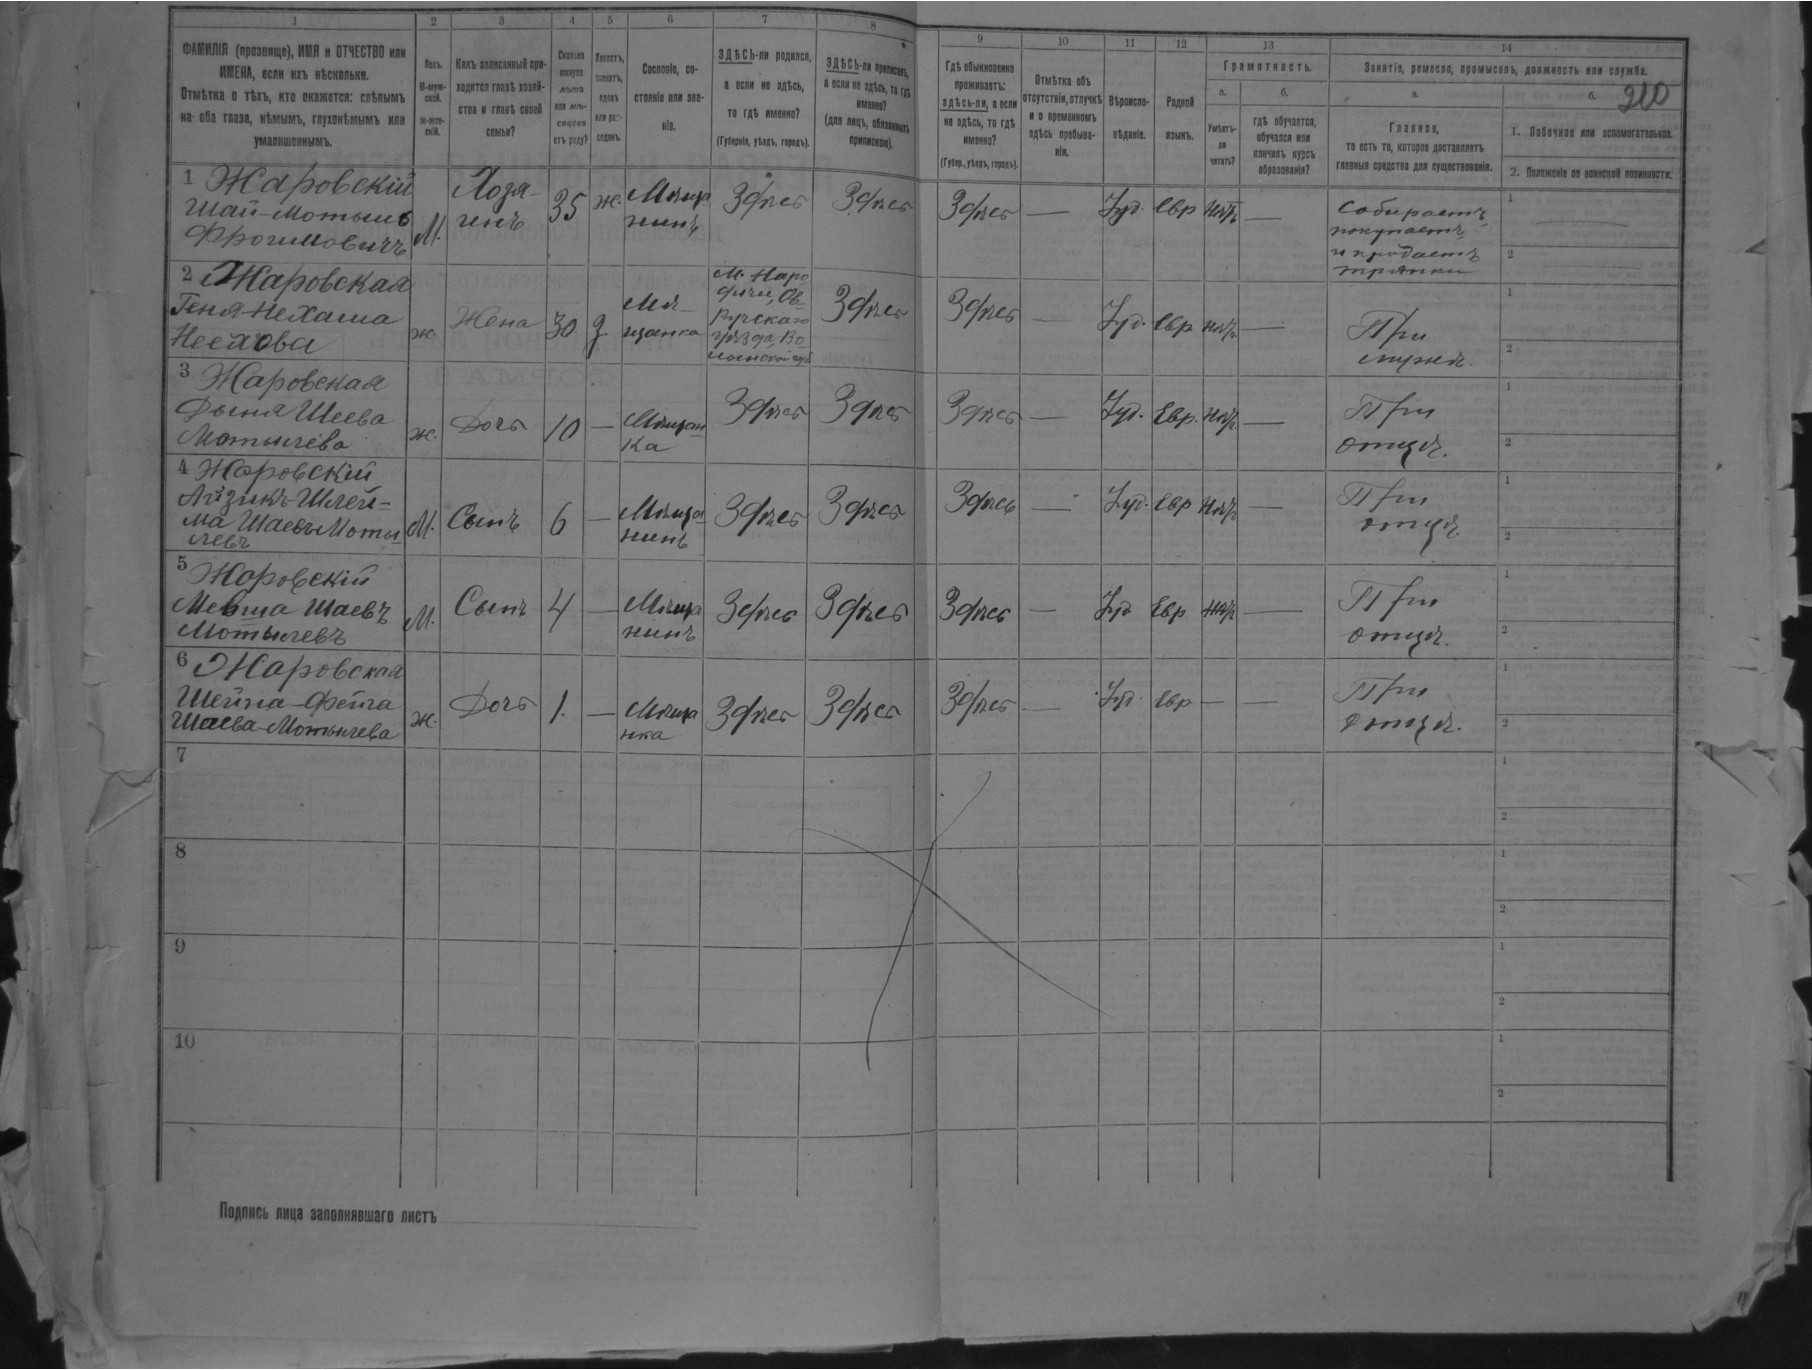 1 2 3 4 5 6 7 8 9 10 11 12 13 14
ФАМИЛІЯ (прозвище), ИМЯ и ОТЧЕСТВО или
ИМЕНА, если ихъ нѣсколько.
Отмѣтка о тѣхъ, кто окажется: слѣпымъ
на оба глаза, нѣмымъ, глухонѣмымъ или
умалишеннымъ.
Полъ.
М-муж-
ской.
Ж-жен-
скій.
Какъ записанный при-
ходится главѣ хозяй-
ства и главѣ своей
семьи?
Сколько
минуло
лѣтъ
или мѣ-
сяцевъ
отъ роду?
Холостъ,
женатъ,
вдовъ
или раз-
веденъ.
Сословіе, со-
стояніе или зва-
ніе.
ЗДѢСЬ-ли родился,
а если не здѣсь,
то гдѣ именно?
(Губернія, уѣздъ, городъ).
ЗДѢСЬ-ли приписанъ,
а если не здѣсь, то гдѣ
именно?
(для лицъ, обязанныхъ
припискою).
Гдѣ обыкновенно
проживаетъ:
здѣсь-ли, а если
не здѣсь, то гдѣ
именно?
(Губер., уѣздъ, городъ).
Отмѣтка объ
отсутствіи, отлучкѣ
и о временномъ
здѣсь пребыва-
ніи.
Вѣроиспо-
вѣданіе.
Родной
языкъ.
Грамотность.
а.
Умѣетъ-
ли
читать?
б.
гдѣ обучается,
обучался или
кончилъ курсъ
образованія?
Занятіе, ремесло, промыселъ, должность или служба.
а.
Главное,
то есть то, которое доставляетъ
главныя средства для существованія.
б.
210
1. Побочное или вспомогательное.
2. Положеніе по воинской повинности.
1 Жаровскій
Шай-Мотыль
Фроимовичъ
М.
Хозя-
инъ
35
ж.
Мѣща
нинъ
Здѣсь
Здѣсь
Здѣсь
—
Іуд.
Евр
Нѣтъ
—
Собираетъ
покупаетъ
и продаетъ
тряпки
1
2
2 Жаровская
Геня-Нехама
ж.
Жена
30
З
Мѣ-
щанка
М. Наро
дичи, Ов-
ручскаго
уѣзда, Во
лынской губ
Здѣсь
Здѣсь
—
Іуд.
Евр
нѣтъ
—
При
мужѣ.
1
2
3 Жаровская
Дыня Шеева
Мотылева
ж.
Дочь
10
—
Мѣщан
ка
Здѣсь
Здѣсь
Здѣсь
—
Іуд.
Евр.
нѣтъ
—
При
отцѣ.
1
2
4 Жаровскій
Айзикъ-Шлей-
ма Шаевъ Моты-
левъ
М.
Сынъ
6
—
Мѣща
нинъ
Здѣсь
Здѣсь
Здѣсь
—
Іуд.
Евр
нѣтъ
—
При
отцѣ.
1
2
5 Жаровскій
Мевша Шаевъ
Мотылевъ
М.
Сынъ
4
—
Мѣща
нинъ
Здѣсь
Здѣсь
Здѣсь
—
Іуд
Евр
нѣтъ
—
При
отцѣ.
1
2
6 Жаровская
Шейна-Фейга
Шаева-Мотылева
ж.
Дочь
1.
—
Мѣща
нка
Здѣсь
Здѣсь
Здѣсь
—
Іуд.
Евр
—
—
При
отцѣ.
1
2
7
1
2
8
1
2
9
1
2
10
1
2
Подпись лица заполнявшаго листъ